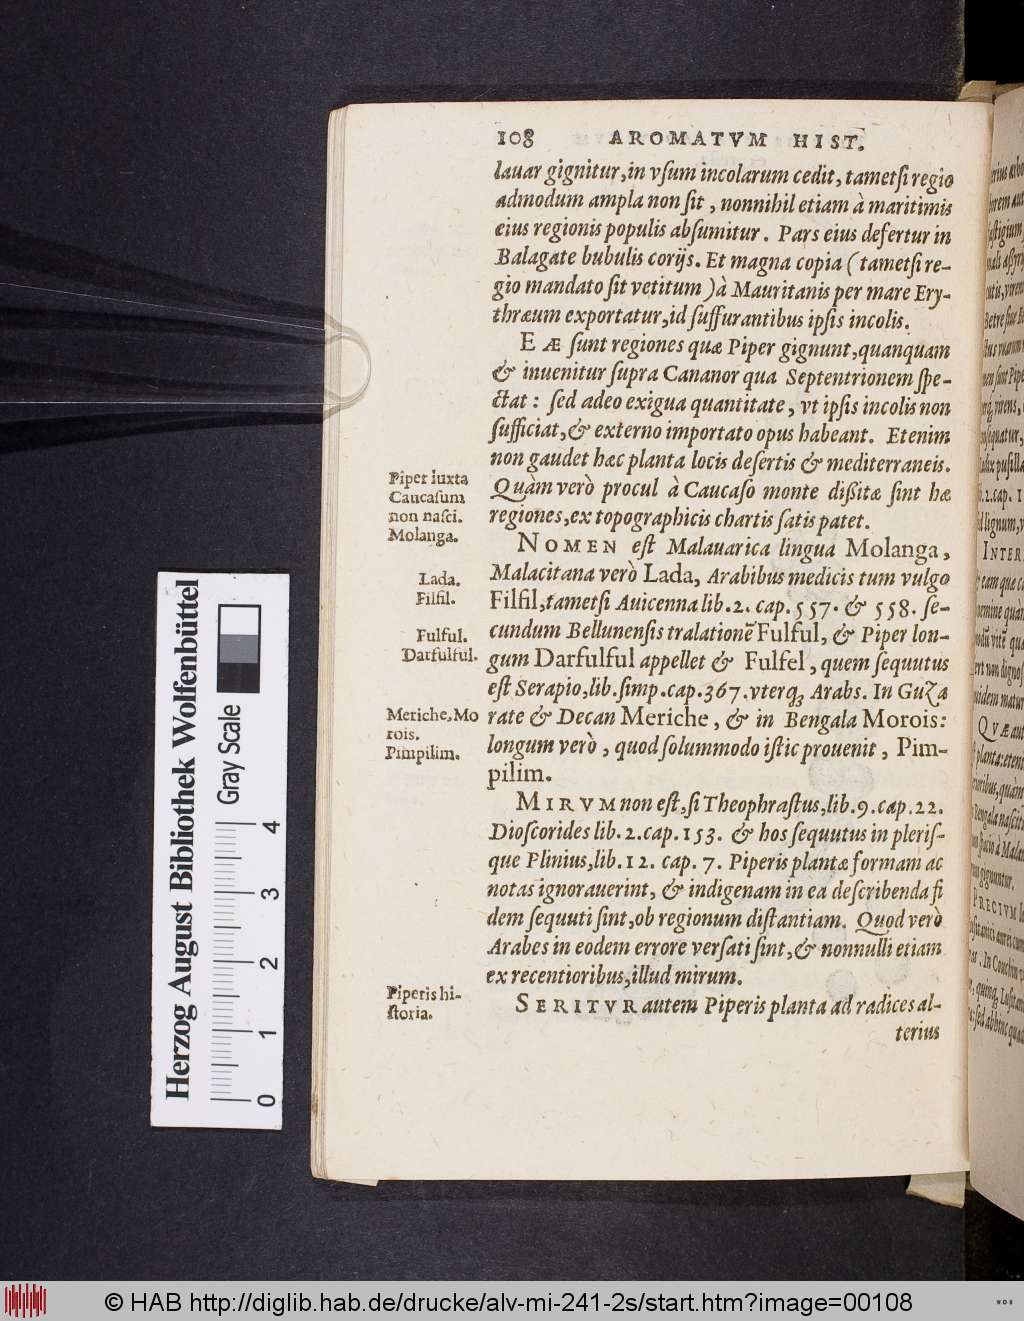 108 AROMATVM HIST.
lauar gignitur, in vſum incolarum cedit, tametſi regio
admodum ampla non ſit, nonnihil etiam à maritimis
eius regionis populis abſumitur. Pars eius defertur in
Balagate bubulis corijs. Et magna copia (tametſi re-
gio mandato ſit vetitum) à Mauritanis per mare Ery-
thræum exportatur, id ſuffurantibus ipſis incolis.
EÆ ſunt regiones quæ Piper gignunt, quanquam
& inuenitur ſupra Cananor qua Septentrionem ſpe-
ctat: ſed adeo exigua quantitate, vt ipſis incolis non
ſufficiat, & externo importato opus habeant. Etenim
non gaudet hæc planta locis deſertis & mediterraneis.
Quàm verò procul à Caucaſo monte diſsitæ ſint hæ
regiones, ex topographicis chartis ſatis patet.
Piper iuxta
Caucaſum
non naſci.
Molanga.
NOMEN eſt Malauarica lingua Molanga,
Malacitana verò Lada, Arabibus medicis tum vulgo
Filfil, tametſi Auicenna lib. 2. cap. 557. & 558. ſe-
cundum Bellunenſis tralationē Fulful, & Piper lon-
gum Darfulful appellet & Fulfel, quem ſequutus
eſt Serapio, lib. ſimp. cap. 367. vterq; Arabs. In Guza
rate & Decan Meriche, & in Bengala Morois:
longum verò, quod ſolummodo iſtic prouenit, Pim-
pilim.
Lada.
Filfil.
Fulful.
Darfulful.
Meriche, Mo
rois.
Pimpilim.
MIRVM non eſt, ſi Theophraſtus, lib. 9. cap. 22.
Dioſcorides lib. 2. cap. 153. & hos ſequutus in pleriſ-
que Plinius, lib. 12. cap. 7. Piperis plantæ formam ac
notas ignorauerint, & indigenam in ea deſcribenda fi
dem ſequuti ſint, ob regionum diſtantiam. Quod verò
Arabes in eodem errore verſati ſint, & nonnulli etiam
ex recentioribus, illud mirum.
Piperis hi-
ſtoria.
SERITVR autem Piperis planta ad radices al-
terius
Herzog August Bibliothek Wolfenbüttel
Gray Scale
0 1 2 3 4
© HAB http://diglib.hab.de/drucke/alv-mi-241-2s/start.htm?image=00108